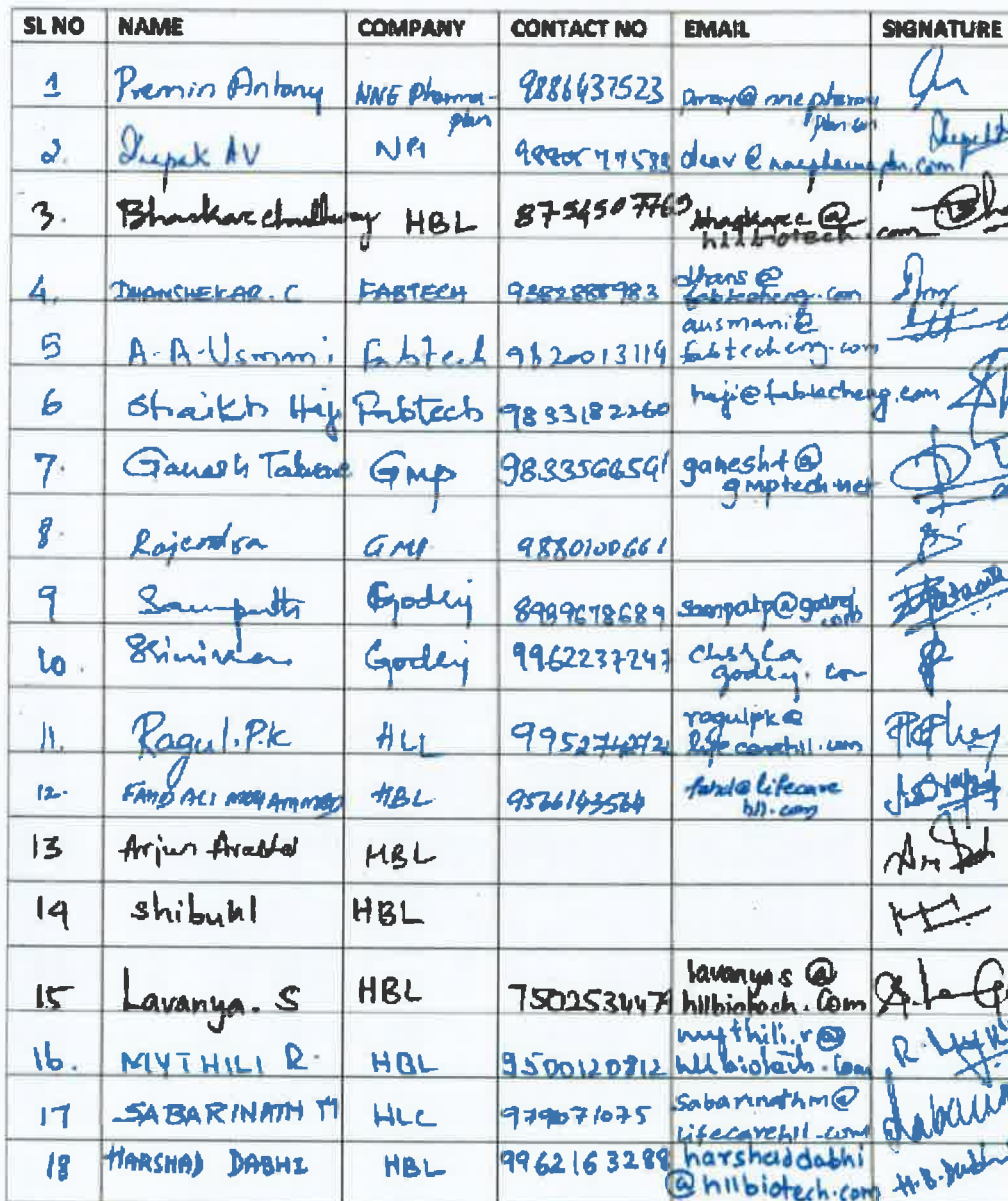 SL NO NAME COMPANY CONTACT NO EMAIL SIGNATURE
1 Premin Antony NNE Pharma-plan 9886437523
2. Deepak AV NPI
3. Bhaskar choudhury HBL 8754507769 bhaskarc@hllbiotech.com
4. DHANSHEKAR. C FABTECH dhans@fabtecheng.com
5 A.A.Usmani Fabtech 9820013119 ausmani@fabtecheng.com
6 Shaikh Haji Fabtech 9833182260 haji@fabtecheng.com
7. Ganesh GMP 9833566591 ganesht@gmptech.net
8. Rajendra GMP 9880100661
9 Sampath Godrej 8939678689
10. Srinivasan Godrej 9962237247 godrej.com
11. Ragul.P.K HLL 9952742721 ragulpk@lifecarehll.com
12. FAHD ALI MOHAMMED HBL 9566143564 fahd@lifecarehll.com
13 Arjun HBL
14 shibu HBL
15 Lavanya. S HBL 7502534479 lavanyas@hllbiotech.com
16. MYTHILI R. HBL 9500120812 mythili.r@hllbiotech.com
17 SABARINATH M HLL 979071075 sabarinathm@lifecarehll.com
18 HARSHAD DABHI HBL 9962163288 harshaddabhi@hllbiotech.com H.B.Dabhi